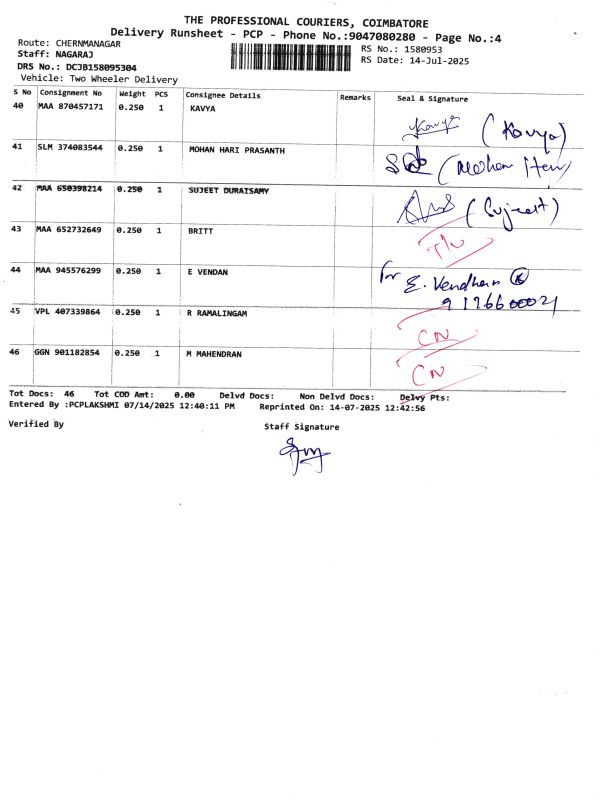 THE PROFESSIONAL COURIERS, COIMBATORE
Delivery Runsheet - PCP - Phone No.:9047080280 - Page No.:4
Route: CHERNMANAGAR
RS No.: 1580953
Staff: NAGARAJ
RS Date: 14-Jul-2025
DRS No.: DCJB158095304
Vehicle: Two Wheeler Delivery
S No Consignment No Weight PCS Consignee Details Remarks Seal & Signature
40 MAA 870457171 0.250 1 KAVYA Kavya (Kavya)
41 SLM 374083544 0.250 1 MOHAN HARI PRASANTH (Mohan
42 MAA 650398214 0.250 1 SUJEET DURAISAMY (Sujeet)
43 MAA 652732649 0.250 1 BRITT
44 MAA 945576299 0.250 1 E VENDAN for E. Vendhan
45 VPL 407339864 0.250 1 R RAMALINGAM CN
46 GGN 901182854 0.250 1 M MAHENDRAN CN
Tot Docs: 46 Tot COD Amt: 0.00 Delvd Docs: Non Delvd Docs: Delvy Pts:
Entered By :PCPLAKSHMI 07/14/2025 12:40:11 PM Reprinted On: 14-07-2025 12:42:56
Verified By Staff Signature